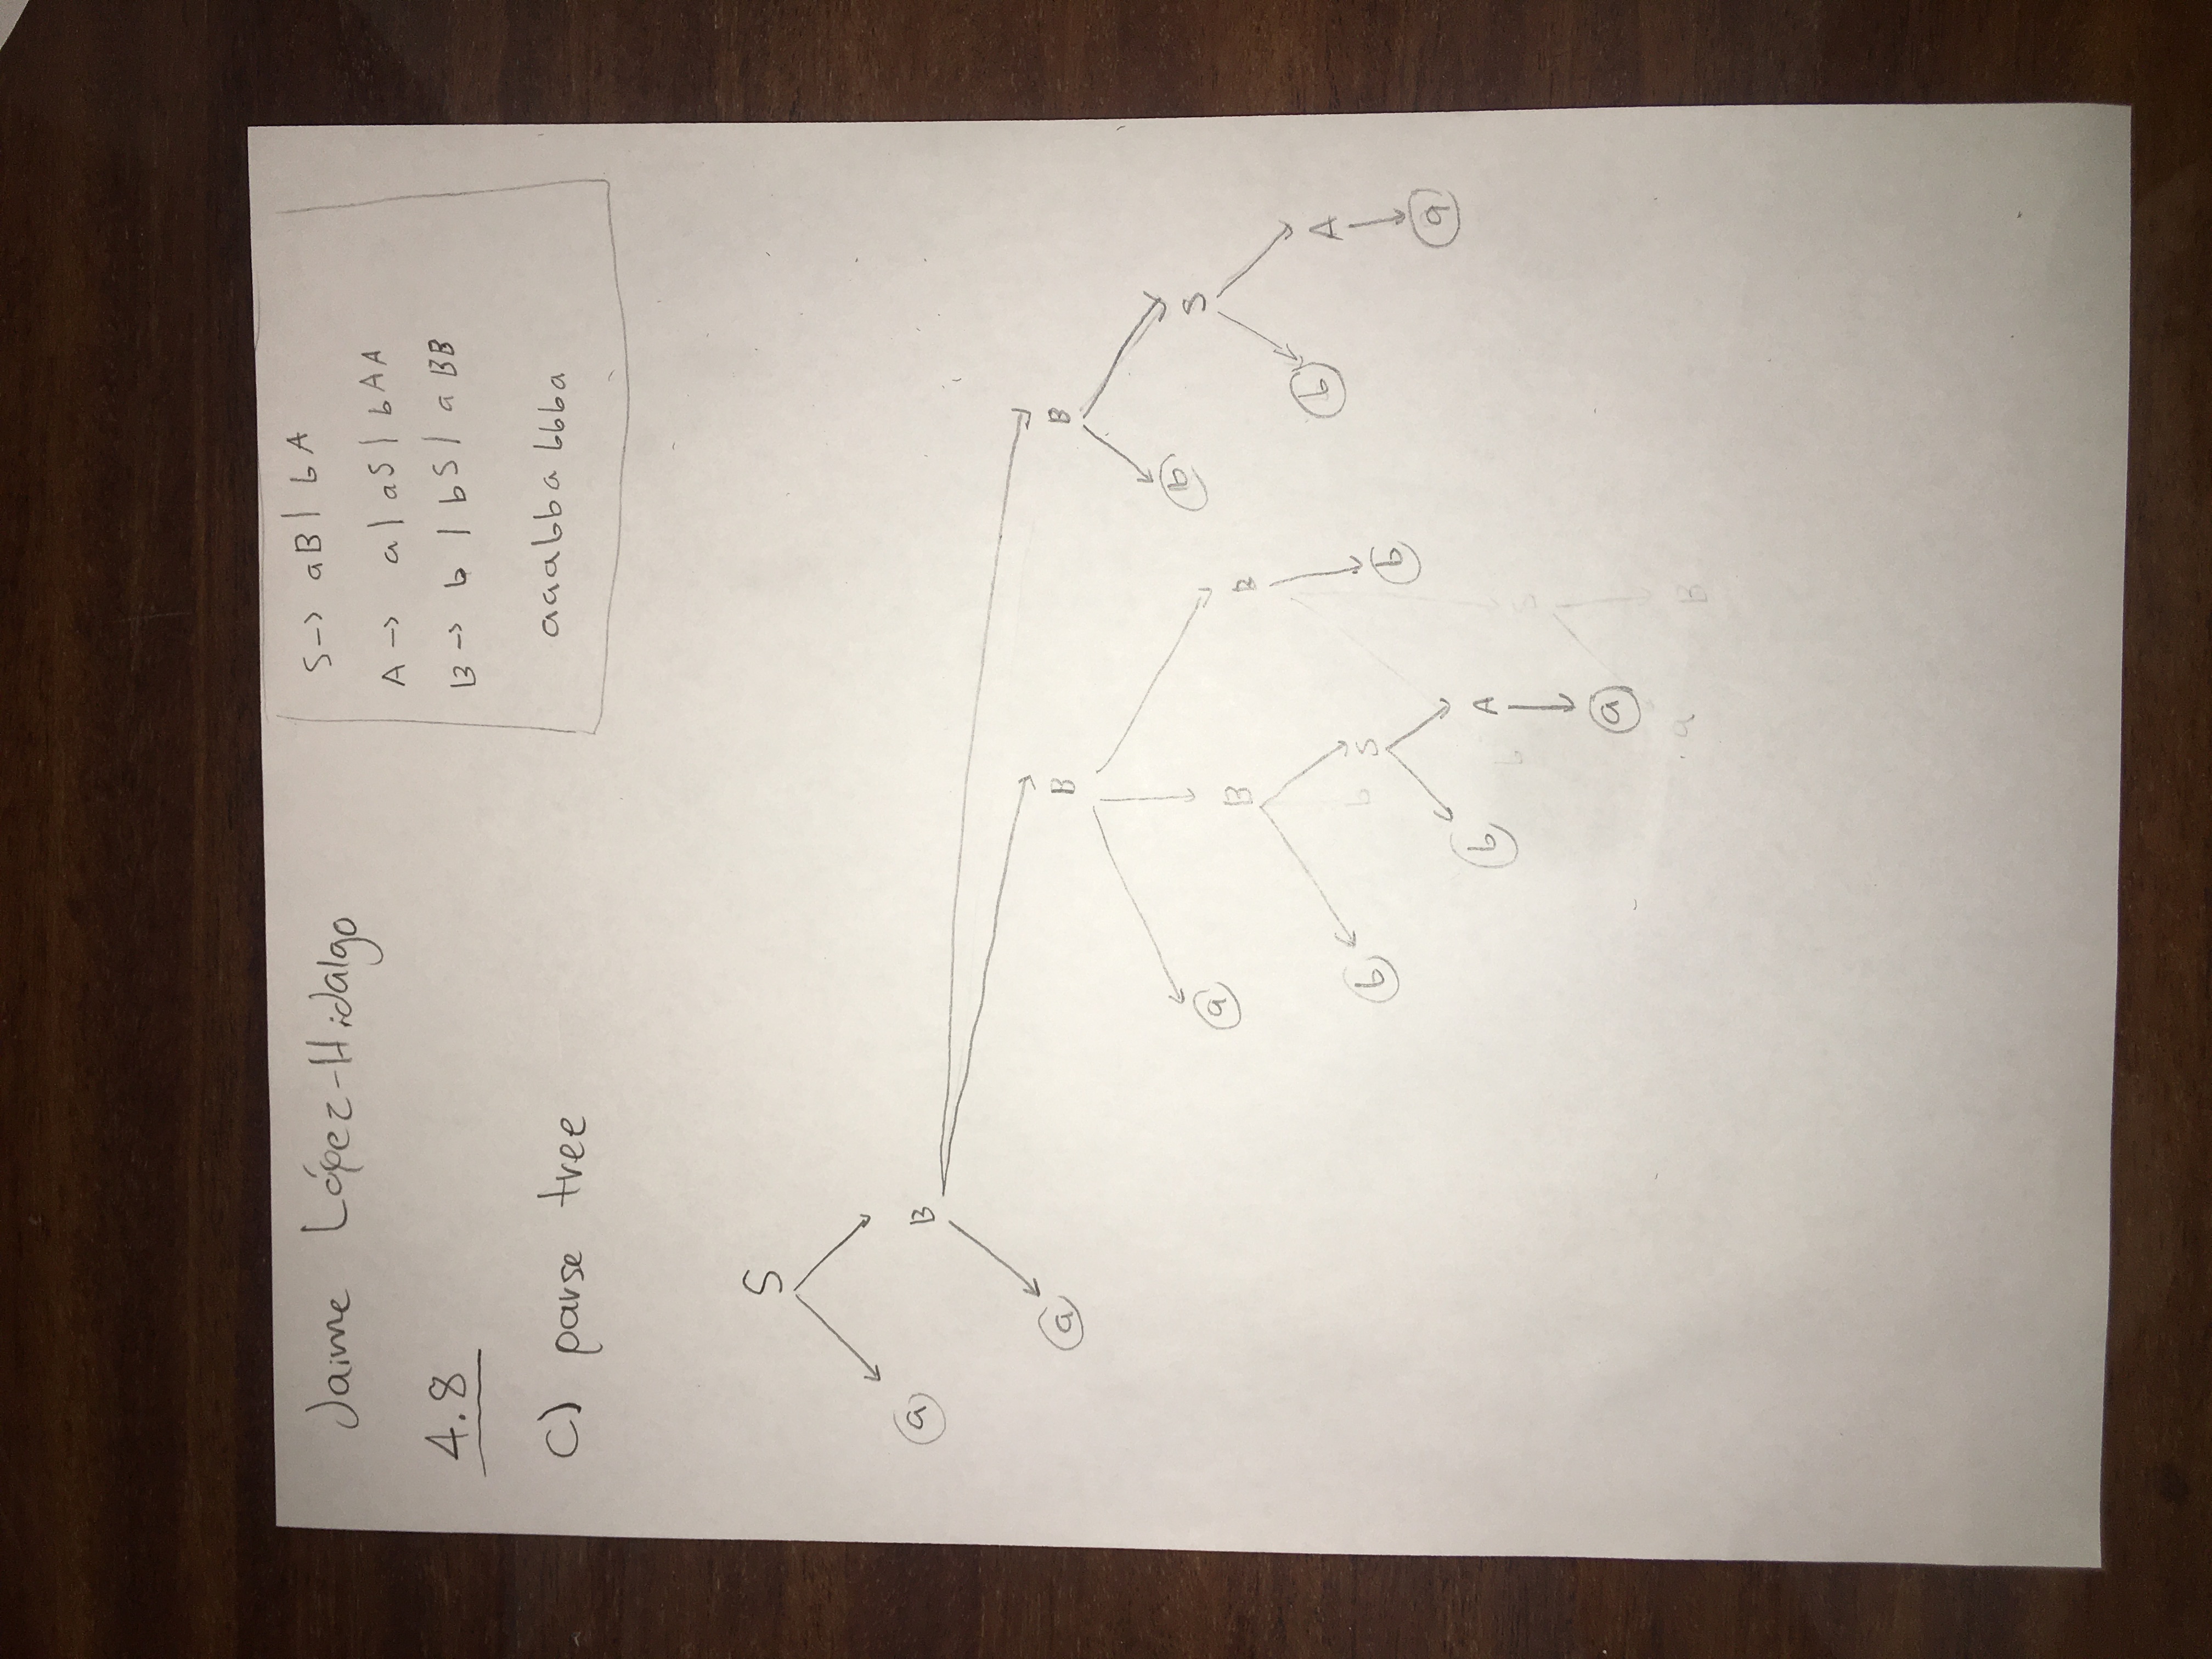 Jaime López-Hidalgo
4.8
C) parse tree
S -> aB | bA
A -> a | aS | bAA
B -> b | bS | aBB
aaabbabbba
S
a B
a B B
a B B b S
b S b b A
b A a
a